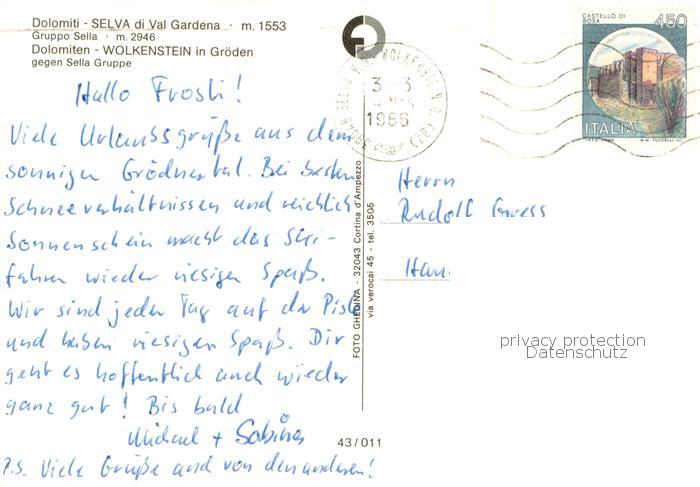 Dolomiti - SELVA di Val Gardena · m. 1553
Gruppo Sella · m. 2946
Dolomiten - WOLKENSTEIN in Gröden
gegen Sella Gruppe
Hallo Froshi!
Viele Urlaubsgrüße aus dem
sonnigen Grödnertal. Bei besten
Schneeverhältnissen und reichlich
Sonnenschein macht das Ski-
fahren wieder riesigen Spaß.
Wir sind jeden Tag auf der Piste
und haben riesigen Spaß. Dir
geht es hoffentlich auch wieder
ganz gut! Bis bald
Michael + Sabine
P.S. Viele Grüße auch von den anderen!
FOTO GHEDINA - 32043 Cortina d'Ampezzo
via verocai 45 - tel. 3505
43/011
3-3
1986
CASTELLO DI
BOSA
450
ITALIA
Herrn
Rudolf
privacy protection
Datenschutz